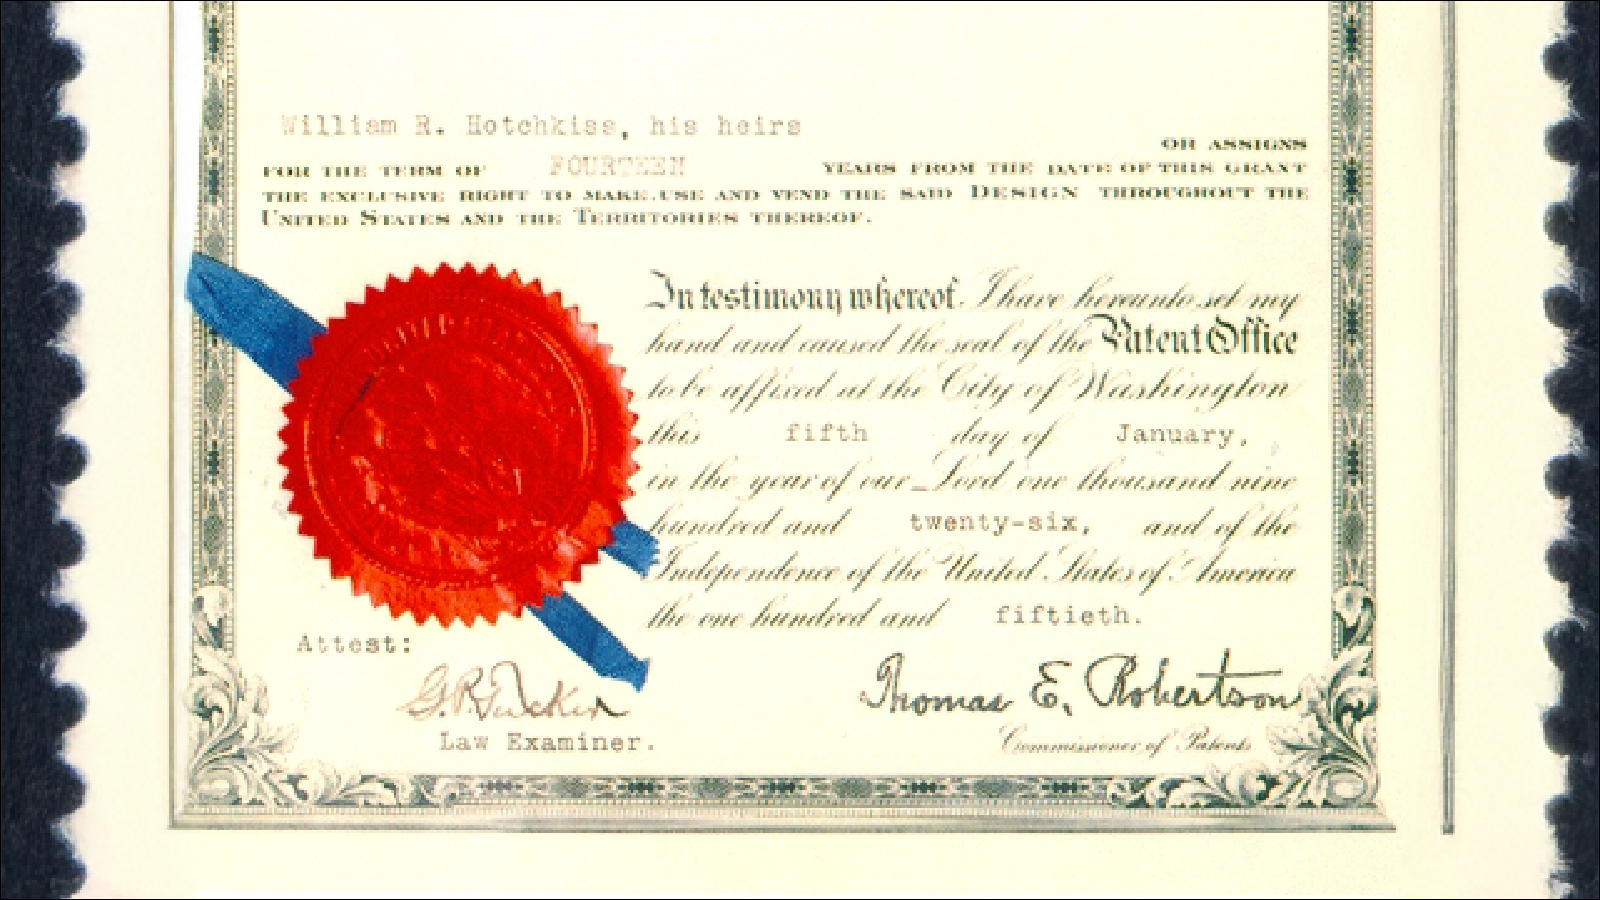 William R. Hotchkiss, his heirs
OR ASSIGNS
FOR THE TERM OF FOURTEEN YEARS FROM THE DATE OF THIS GRANT
THE EXCLUSIVE RIGHT TO MAKE, USE AND VEND THE SAID DESIGN THROUGHOUT THE
UNITED STATES AND THE TERRITORIES THEREOF.
In testimony whereof, I have hereunto set my
hand and caused the seal of the Patent Office
to be affixed at the City of Washington
this fifth day of January,
in the year of our Lord one thousand nine
hundred and twenty-six, and of the
Independence of the United States of America
the one hundred and fiftieth.
Attest:
G.P. Tucker
Law Examiner.
Thomas E. Robertson
Commissioner of Patents